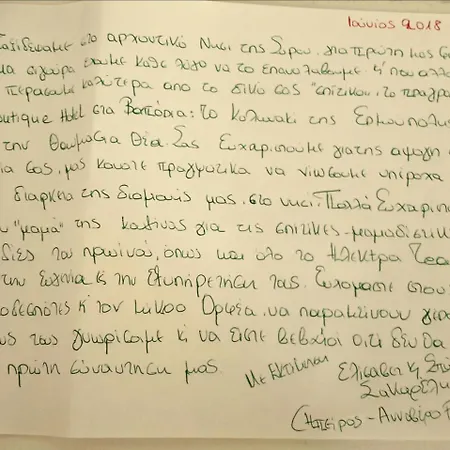 Ιούνιος 2018
Ταξιδέψαμε στο αρχοντικό Νησί της Σύρου, για πρώτη μας
μα σίγουρα έχουμε κάθε λόγο να το επαναλάβουμε. Κι που αλλού
περάσαμε καλύτερα από το δικό σας "σπιτικό", το πραγμα
outique Hotel στα Βαπόρια: το Κολωνάκι της Ερμούπολης
την θαυμάσια θέα. Σας Ευχαριστούμε για την άψογη
ία σας, μας κάνατε πραγματικά να νιώσουμε υπέροχα
διάρκεια της διαμονής μας, στο νησί. Πολλά Ευχαρισ
"μαμά" της κουζίνας για τις σπιτικές-μαμαδίστικ
διές του πρωινού, όπως και όλο το Ηλέκτρα Team
την Ευγένεια κ την Εξυπηρέτηση τους. Ευχόμαστε στου
οδεσπότες κ τον μικρό Ορφέα, να παραμείνουν γερο
ους τους γνωρίσαμε κ να είστε βέβαιοι ότι δεν θα
πρώτη συνάντηση μας.
Με Εκτίμηση
Ελισάβετ κ Σπύ
Σακαρέλ
(Ήπειρος-